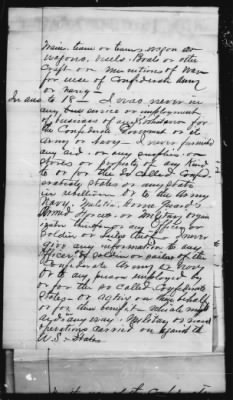 train, team or teams, wagon or
wagons, vessels, Boats or other
craft or munitions of War
for use of Confederate Army
or navy —
In ans to 18 — I was never in
any bus service or employment
of business of any kind whatever for
the Confederate Government or its
Army or Navy. I never furnished
any aid, or any supplies, or
stores or property of any kind
to or for the so called Confed-
erate States or any State
in rebellion or to the Army
Navy, Militia, home guard
armed force, or Military organ
ization thereof or any Officer or
Soldier or Sailor thereof. I never
give any information to any
Officer, soldier or sailor of the
Confederate Army or Navy
or to any person employed by
or for the so called Confederate
States or acting on their behalf
or for their benefit which might
aid in any way Military or naval
operations carried on against the
U.S. States